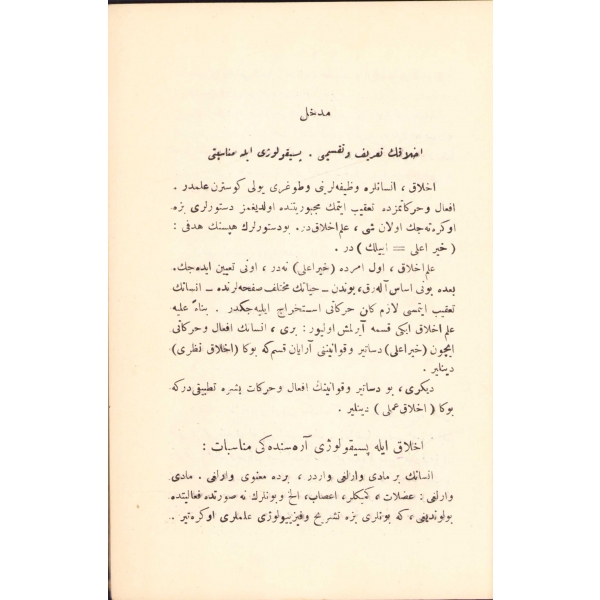 مدخل
اخلاقك تعريف و تقسيمى . پسيقولوژى ايله مناسبتى
اخلاق ، انسانلره وظيفه‌لرينى وطوغرى يولى كوسترن علمدر .
افعال وحركاتمزده تعقيب ايتمك مجبوريتنده اولديغمز دستورلرى بزه
اوكره‌ته‌جك اولان شى ، علم اخلاق‌در. بودستورلرك هپسنك هدفى :
( خير اعلى = اييلك ) در .
علم اخلاق ، اول امرده (خيراعلى) نه‌در ، اونى تعيين ايده‌جك.
بعده بونى اساس آله‌رق، بوندن ـ حياتك مختلف صفحه‌لرنده ـ انسانك
تعقيب ايتمسى لازم كلن حركاتى استخراج ايليه‌جكدر . بناءً عليه
علم اخلاق ايكى قسمه آيرلمش اوليور : برى ، انسانك افعال وحركاتى
ايچون (خيراعلى) دساتير وقوانيننى آرايان قسم‌كه بوكا (اخلاق نظرى)
دينلير .
ديكرى ، بو دساتير وقوانينك افعال وحركات بشره تطبيقى‌دركه
بوكا ( اخلاق عملى ) دينلير .
اخلاق ايله پسيقولوژى آره‌سنده‌كى مناسبات :
انسانك بر مادى وارلغى واردر ، برده معنوى وارلغى . مادى
وارلغى : عضلات ، كميكلر ، اعصاب ، الخ وبونلرك نه صورتده فعاليتده
بولونديغى ، كه بونلرى بزه تشريح وفيزيولوژى علملرى اوكره‌تير .